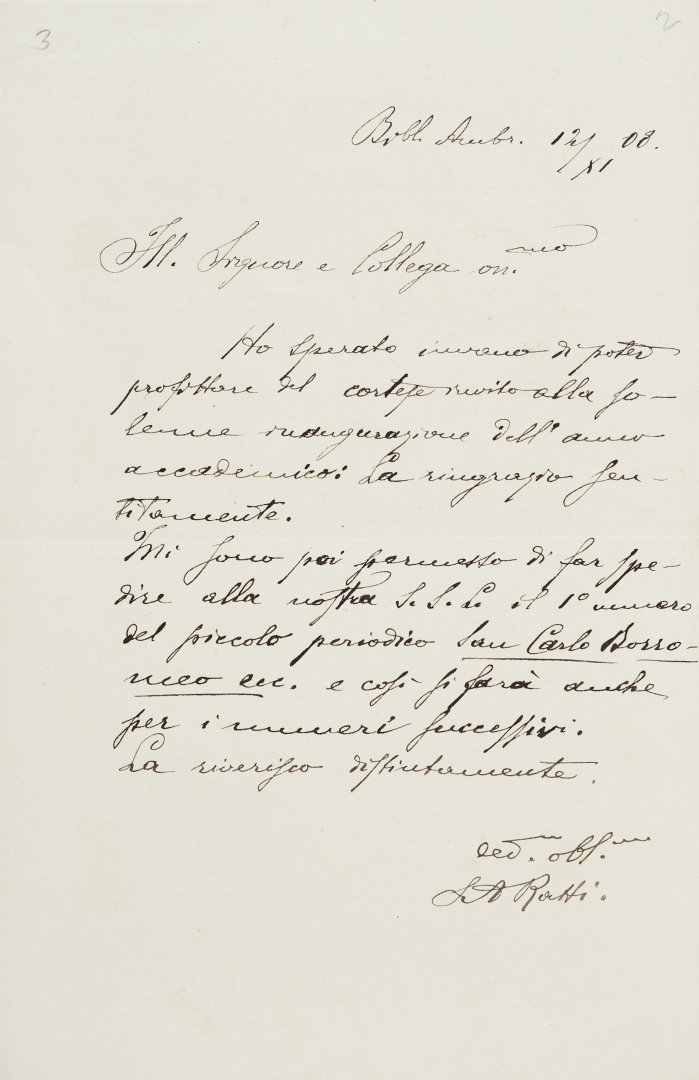 3
2
Bibl. Ambr. 12/XI 08.
Ill. Signore e Collega on.mo
Ho sperato invano di poter
profittare del cortese invito alla so-
lenne inaugurazione dell' anno
accademico: La ringrazio sen-
titamente.
Mi sono poi permesso di far spe-
dire alla nostra S. S. L. il 1° numero
del piccolo periodico San Carlo Borro-
meo ecc. e così si farà anche
per i numeri successivi.
La riverisco distintamente.
ded.mo obl.mo
S. A Ratti.